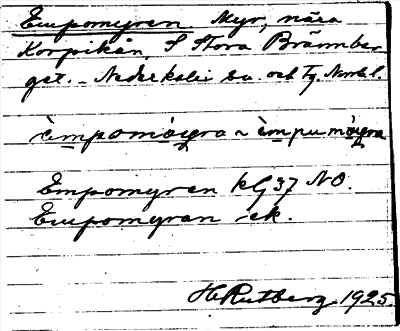 Empomyren. Myr, nära
Korpikån S Stora Brännber-
get. - Nederkalix sn. och Tg. Norrb. l.
èmpomóyra ~ èmpumóyra
Empomyren kG 37 NO.
Empomyran ek.
H. Rutberg 1925.